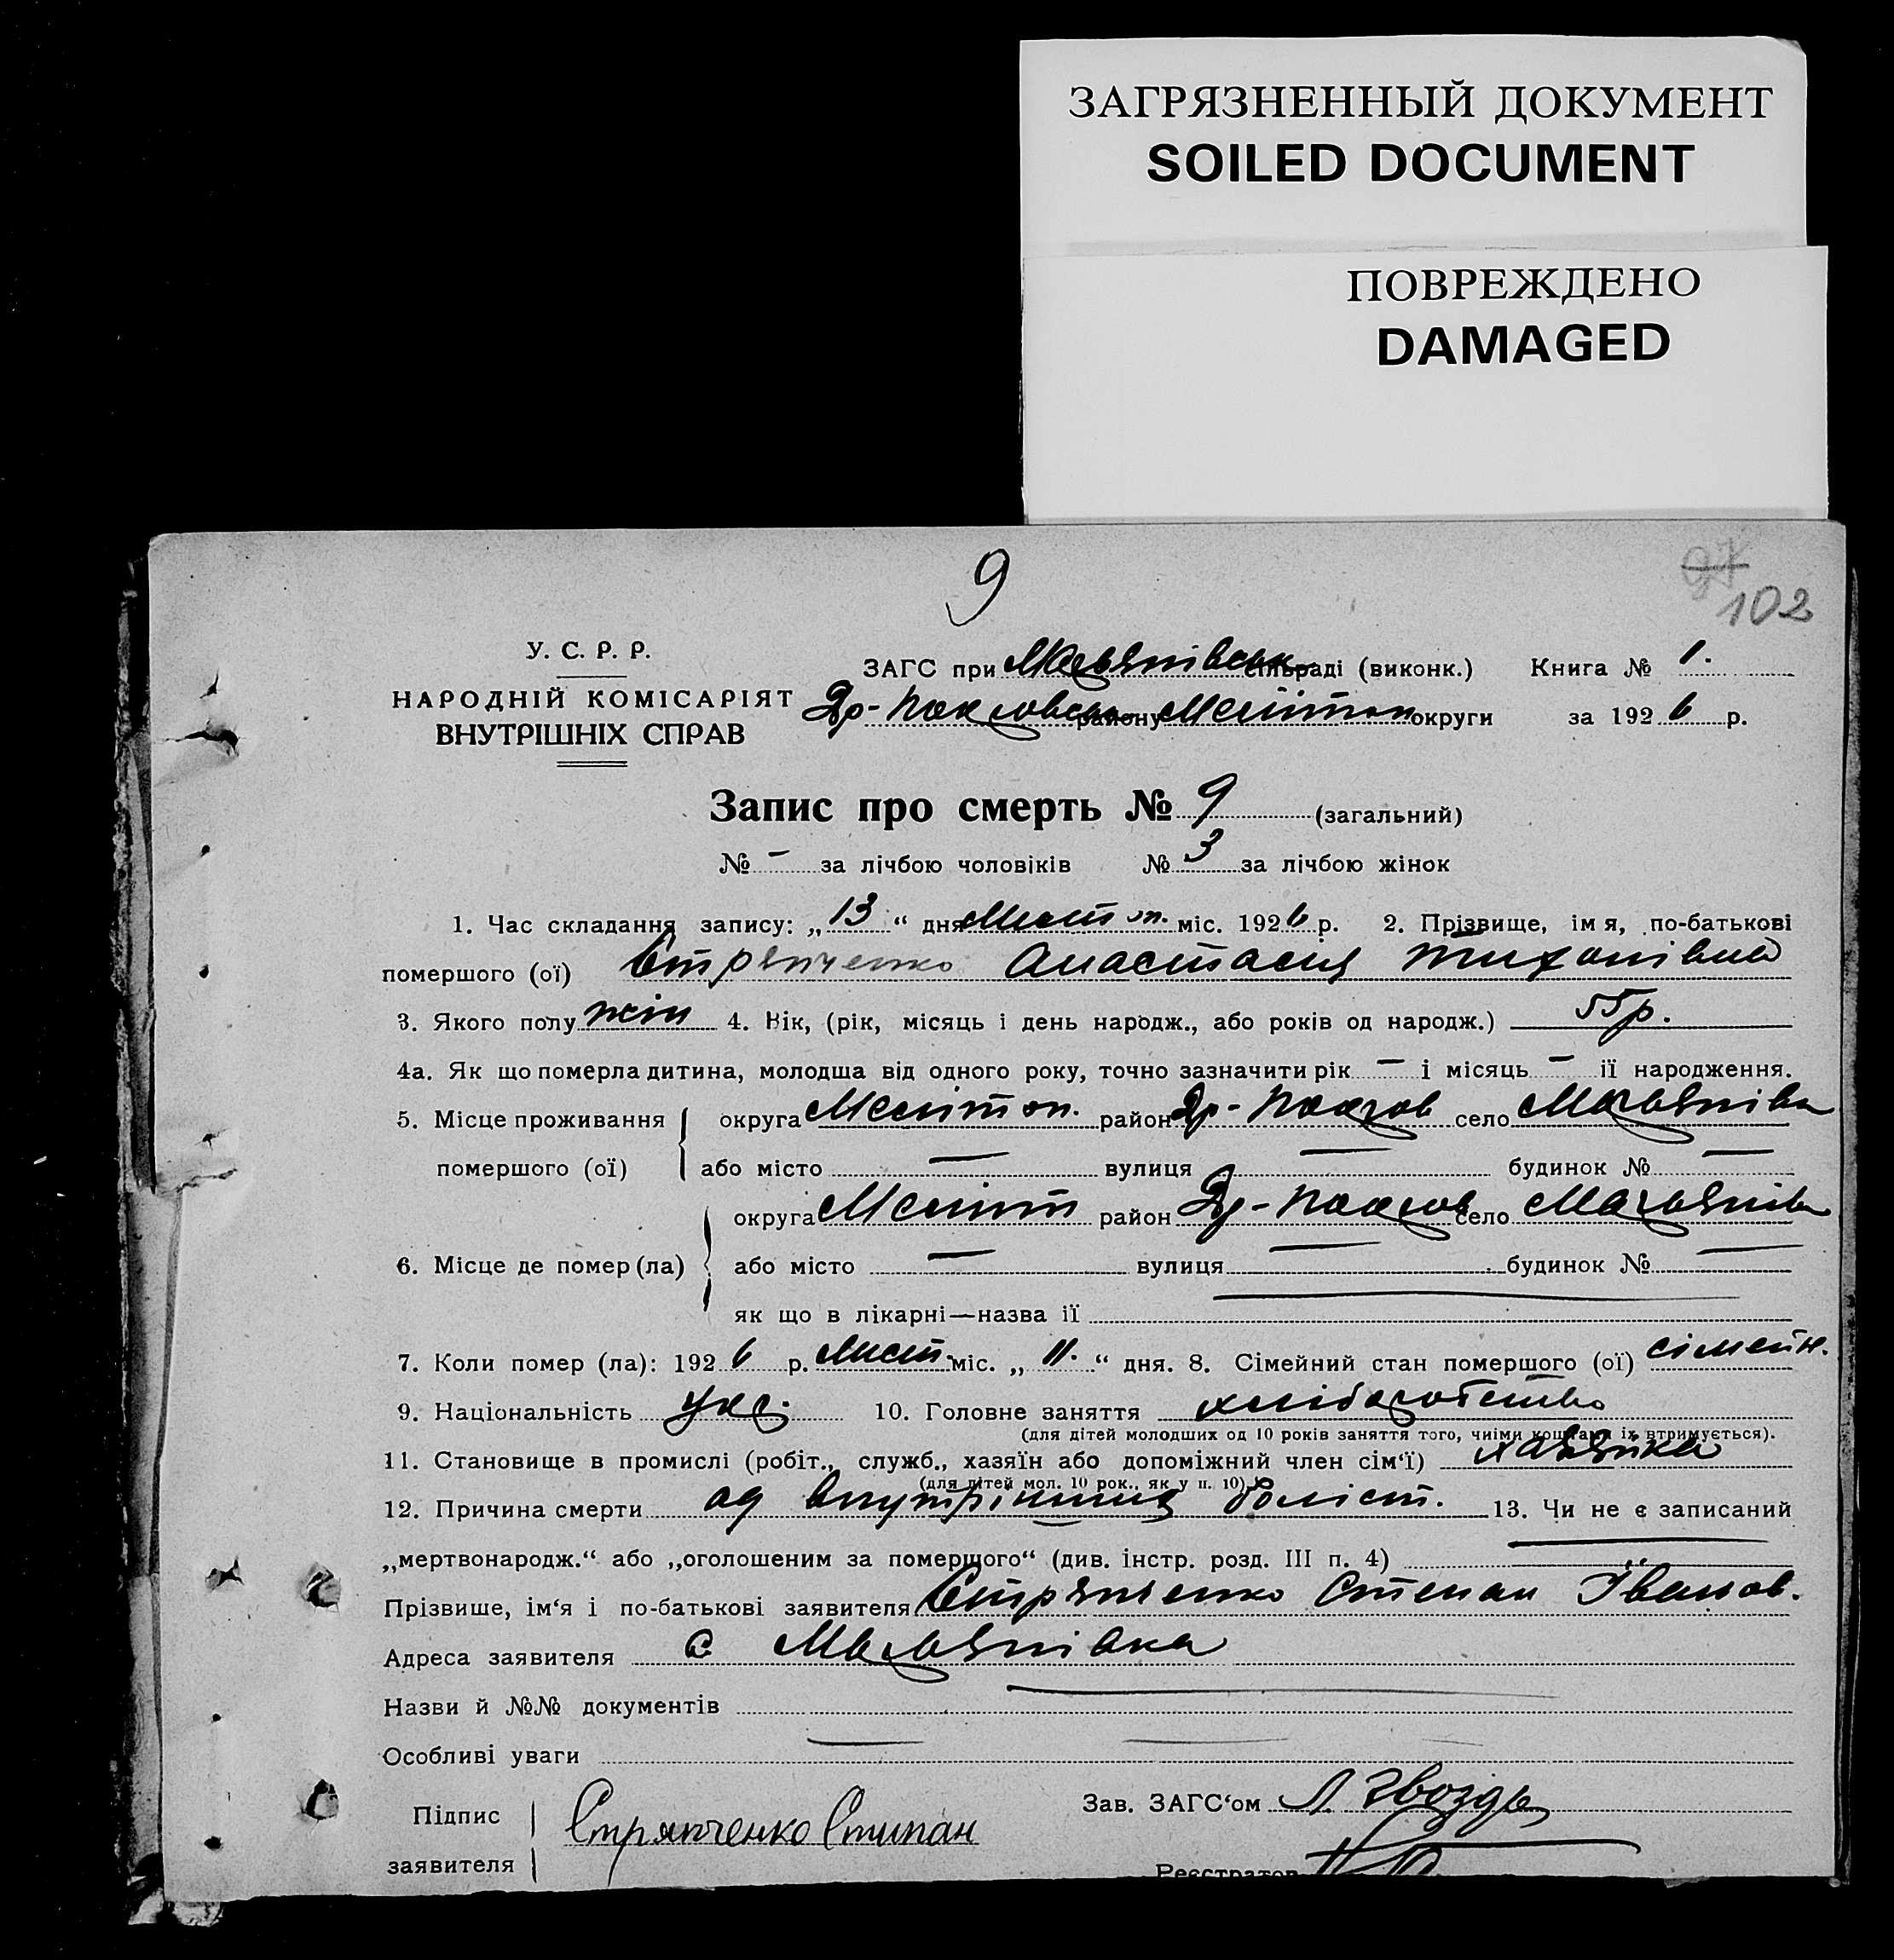 ЗАГРЯЗНЕННЫЙ ДОКУМЕНТ
SOILED DOCUMENT
ПОВРЕЖДЕНО
DAMAGED
9
97
102
У. С. Р. Р.
НАРОДНІЙ КОМІСАРІЯТ
ВНУТРІШНІХ СПРАВ
ЗАГС при сільраді (виконк.) Книга № 1.
району Мелітоп округи за 1926 р.
Запис про смерть № 9 (загальний)
№ - за лічбою чоловіків № 3 за лічбою жінок
1. Час складання запису: „13“ дня міс. 1926 р. 2. Прізвище, імя, по-батькові
помершого (ої) Стрянченко Анастасія Тихонівна
3. Якого полу жін 4. Вік, (рік, місяць і день народж., або років од народж.) 55 р.
4а. Як що померла дитина, молодша від одного року, точно зазначити рік — і місяць — її народження.
5. Місце проживання округа Мелітоп. район село
помершого (ої) або місто — вулиця — будинок № —
округа Меліт район село
6. Місце де помер (ла) або місто — вулиця — будинок № —
як що в лікарні—назва її —
7. Коли помер (ла): 1926 р. Лист. міс. „11.“ дня. 8. Сімейний стан помершого (ої) сімейн.
9. Національність Укр. 10. Головне заняття хліборобство
(для дітей молодших од 10 років заняття того, чиїми коштами їх втримується).
11. Становище в промислі (робіт., служб., хазяїн або допоміжний член сім‘ї) хазяйка
(для дітей мол. 10 рок., як у п. 10)
12. Причина смерти од внутрішних боліст. 13. Чи не є записаний
„мертвонародж.“ або „оголошеним за померщого“ (див. інстр. розд. III п. 4) —
Прізвище, ім‘я і по-батькові заявителя Стрянченко Степан Іванов.
Адреса заявителя с
Назви й №№ документів —
Особливі уваги — — —
Підпис
заявителя
Стрянченко Стипан
Зав. ЗАГС‘ом Л. Гвоздь
Реєстратор